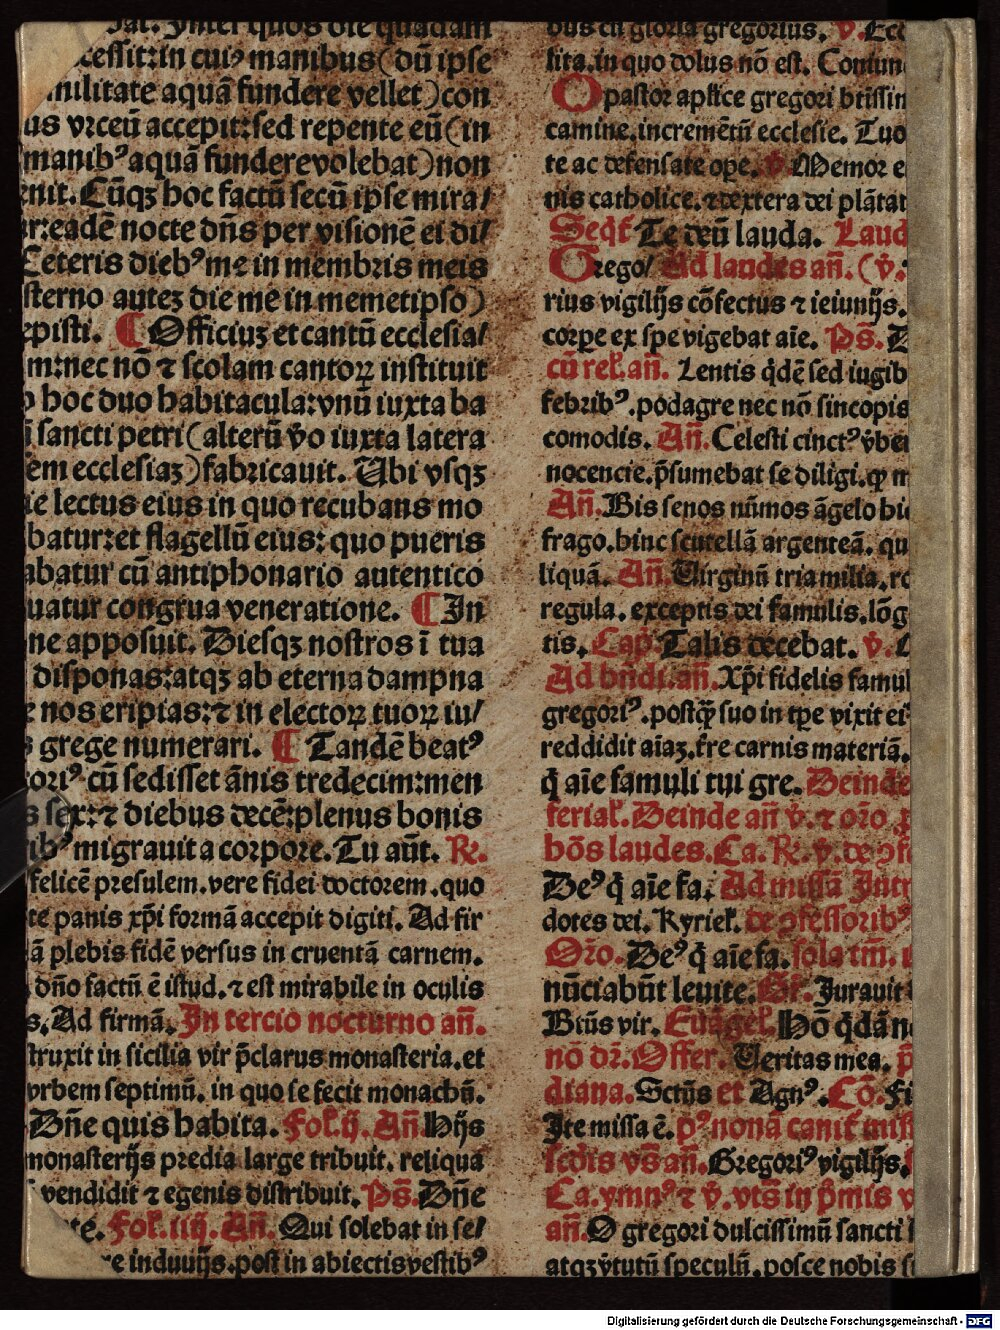 Inter quos die quadam
cessit:in cuiꝰ manibus(dū ipse
militate aquā fundere vellet)con
us vrceū accepit:sed repente eū(in
manibꝰ aquā funderevolebat)non
enit. Cūqꝫ hoc factū secū ipse mira/
r:eadē nocte dn̄s per visionē ei di/
Ceteris diebꝰ me in membris meis
sterno auteꝫ die me in memetipso)
episti. ¶ Officiuꝫ et cantū ecclesia/
m:nec nō ⁊ scolam cantoꝝ instituit
hoc duo habitacula:vnū iuxta ba
i sancti petri(alterū v̓o iuxta latera
em ecclesiaꝫ)fabricauit. Ubi vsqꝫ
ie lectus eius in quo recubans mo
batur:et flagellū eius: quo pueris
abatur cū antiphonario autentico
uatur congrua veneratione. ¶ In
ne apposuit. Diesqꝫ nostros ī tua
disponas:atqꝫ ab eterna dampna
e nos eripias:⁊ in electoꝝ tuoꝝ iu/
grege numerari. ¶ Tandē beatꝰ
oriꝰ cū sedisset ānis tredecim:men
s sex:⁊ diebus decē:plenus bonis
ibꝰ migrauit a corpore. Tu aūt. ℟.
felicē presulem.vere fidei doctorem.quo
te panis xp̄i formā accepit digiti. Ad fir
ā plebis fidē versus in cruentā carnem.
dn̄o factū ē istud.⁊ est mirabile in oculis
s. Ad firmā. In tercio nocturno an̄.
truxit in sicilia vir p̄clarus monasteria.et
vrbem septimū. in quo se fecit monachū.
Dn̄e quis habita. Fol.ij. An̄. Hijs
monasterijs predia large tribuit. reliqua
vendidit ⁊ egenis distribuit. Ps̄. Dn̄e
te. Fol. iiij. An̄. Qui solebat in se/
re induuijs.post in abiectisvestibꝰ
bus cū gloria gregorius. ℣. Ecc
lita.in quo dolus nō est. Coniun
O pastor apl̄ice gregori bt̄issim
camine.incremētū ecclesie. Tuo
te ac defensate ope. ℣. Memor e
nis catholice.⁊dextera dei plātat
Seqt̄ Te deū lauda. Laud
Grego/ Ad laudes an̄. (℣.
rius vigilijs cōfectus ⁊ ieiunijs.
corꝑe ex spe vigebat aīe. Ps̄. D
cū rel̄.an̄. Lentis q̇dē sed iugib
febribꝰ.podagre nec nō sincopis
comodis. An̄. Celesti cinctꝰ v̓ber
nocencie.p̄sumebat se diligi.ꝙ n
An̄. Bis senos nūmos āgelo bi
frago.hinc scutellā argenteā. qu
liquā. An̄. Uirginū tria milia.ro
regula. exceptis dei famulis.lōg
tis. Cap̄. Talis decebat. ℣. L
Ad bn̄di.an̄. Xp̄i fidelis famul
gregoriꝰ.postꝙ̄ suo in tꝑe vixit ei
reddidit aīaꝫ.t̄re carnis materiā.
q̇ aīe famuli tui gre. Deinde
ferial̄. Deinde an̄ ℣. ⁊ or̄o
bōs laudes. Ca. ℟. ℣. de ꝯfe
Deꝰ q̇ aīe fa. Ad missā Intr
dotes dei. Kyriel̄. de ꝯfessoribꝰ
Or̄o. Deꝰ q̇ aīe fa. sola tm̄.
nūciabūt leuite. Gr̄. Jurauit
Bt̄us vir. Euāgel̄. Hō q̇dā n
nō dr̄. Offer. Ueritas mea. p̄
diana. Sctūs et Agnꝰ. Cō. Fi
Ite missa ē. pꝰ nonā canit̄ miss
scd̄is vs̄ an̄. Gregoriꝰ vigilijs.
Ca. ymnꝰ ⁊ ℣. vt̄s in p̄mis v
an̄. O gregori dulcissimū sancti
atqꝫ v̓tutū speculū.posce nobis
Digitalisierung gefördert durch die Deutsche Forschungsgemeinschaft - DFG